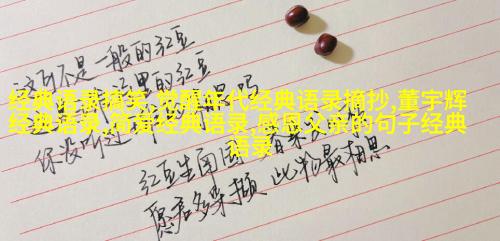 这可不是一般的红豆
这里的红豆
经典语录搞笑,觉醒年代经典语录摘抄,董宇辉
经典语录,简爱经典语录,感恩父亲的句子经典
语录
你没听过
吗
红豆生南国 春来发
愿君多采撷 此物最相思